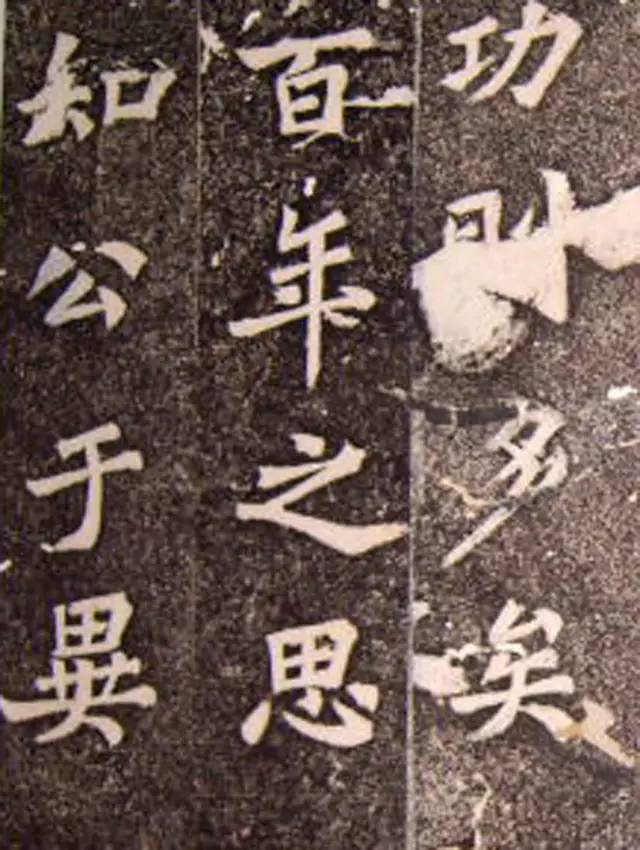 功則多矣
百年之思
知公于異